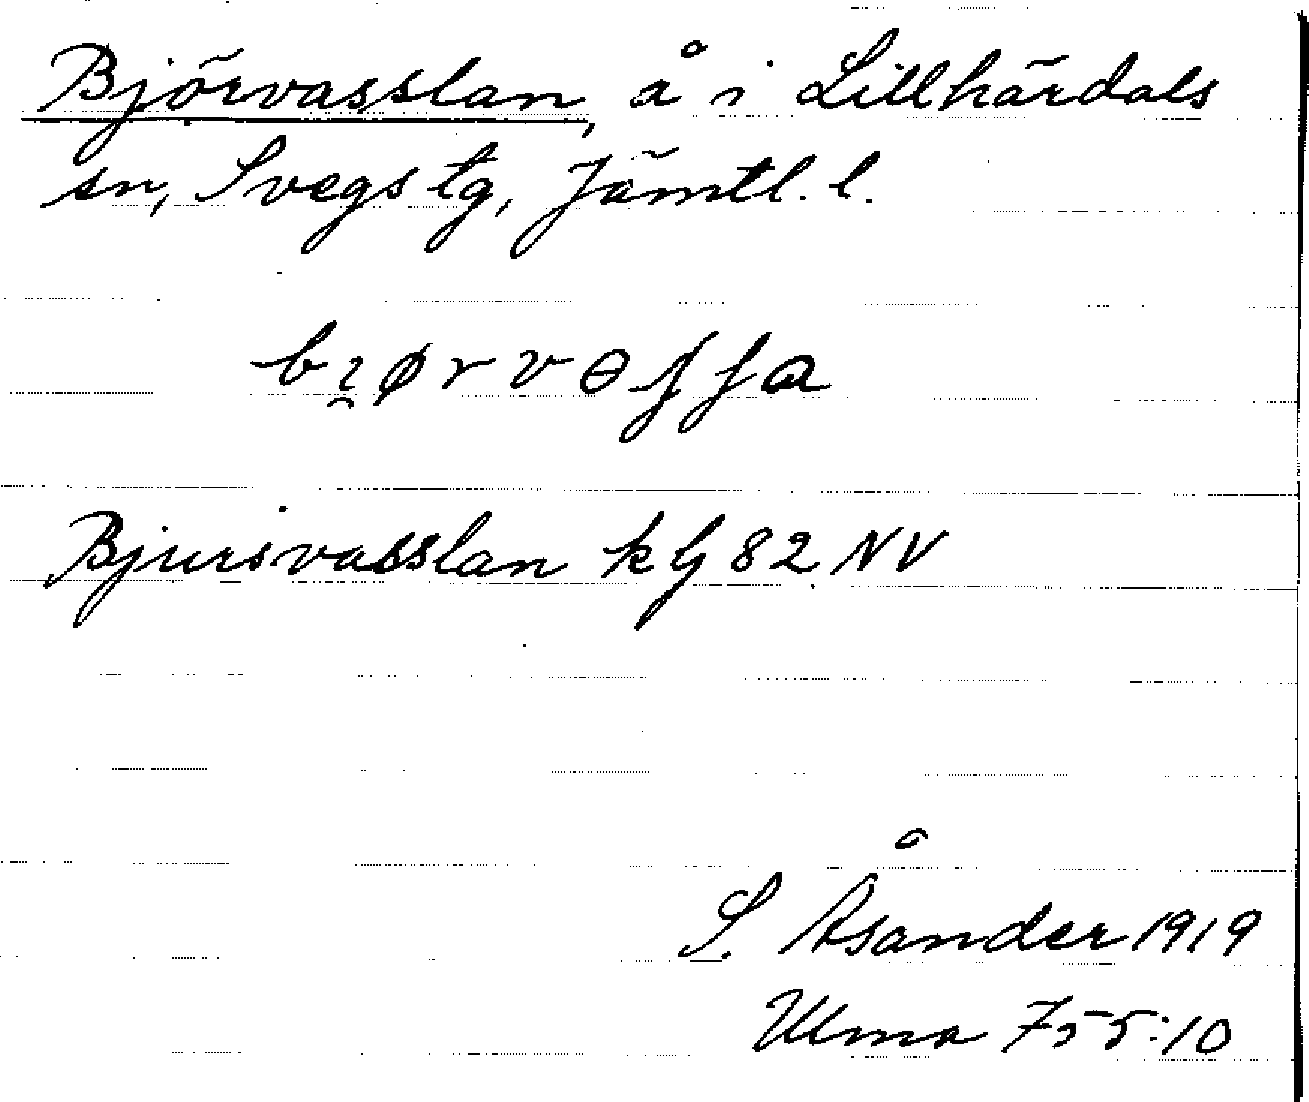 Björvasslan, å i Lillhärdals
sn, Svegs tg, Jämtl. l.
Bjursvasslan kg 82 NV
S. Åsander 1919
Ulma 755:10